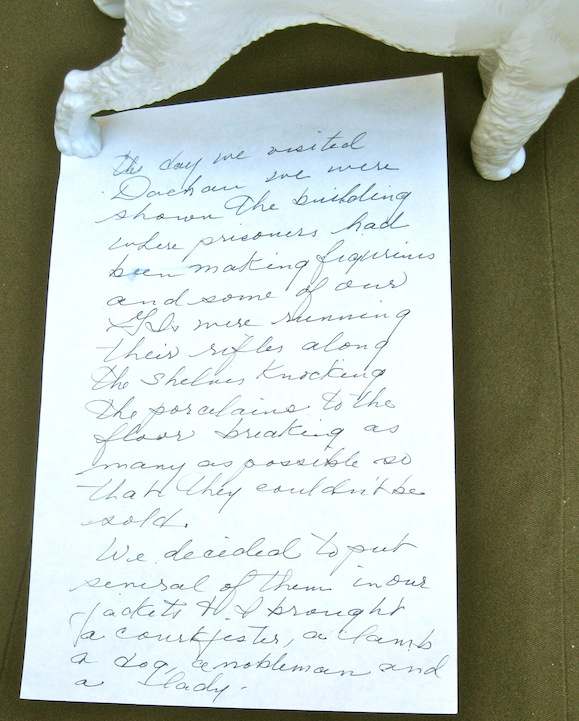 the day we visited
Dachau we were
shown the building
where prisoners had
been making figurins
and some of our
GIs were running
their rifles along
the shelves knocking
the porcelains to the
floor breaking as
many as possible so
that they couldn't be
sold.
We decided to put
several of them in our
jackets & I brought
a court jester, a lamb
a dog, a nobleman and
a lady.